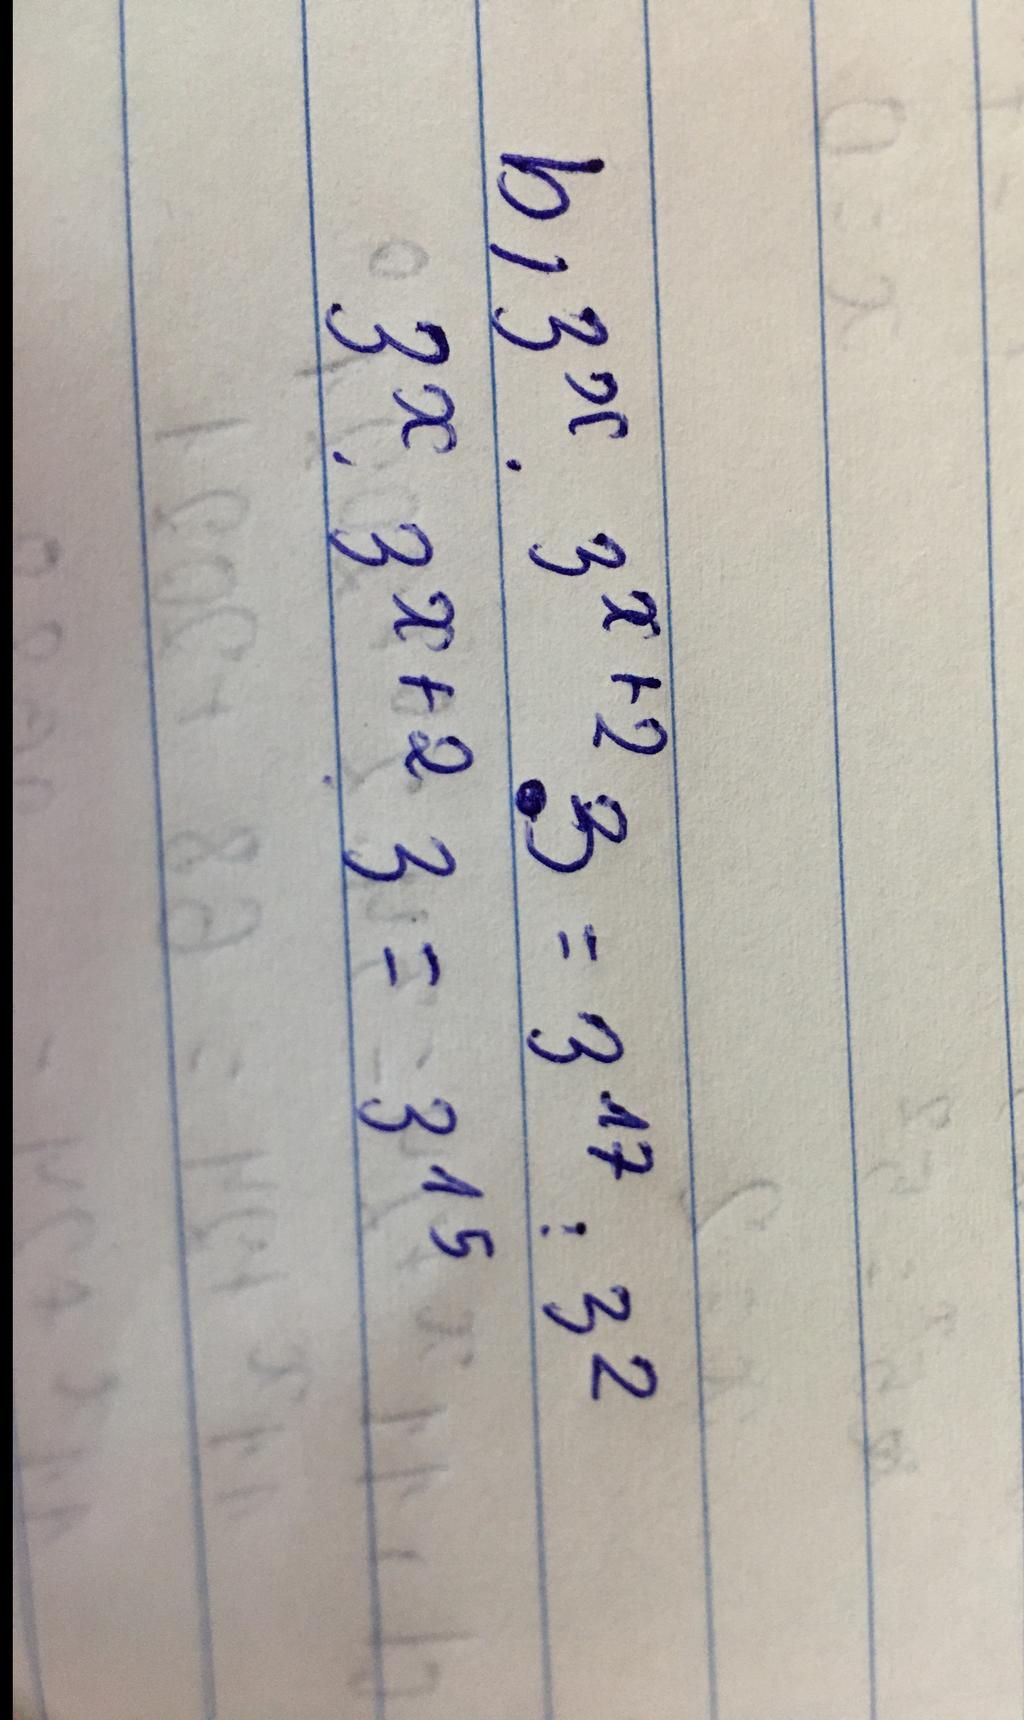 b) 3ˣ . 3ˣ⁺² . 3 = 3¹⁷ : 3²
3ˣ . 3ˣ⁺² . 3 = 3¹⁵